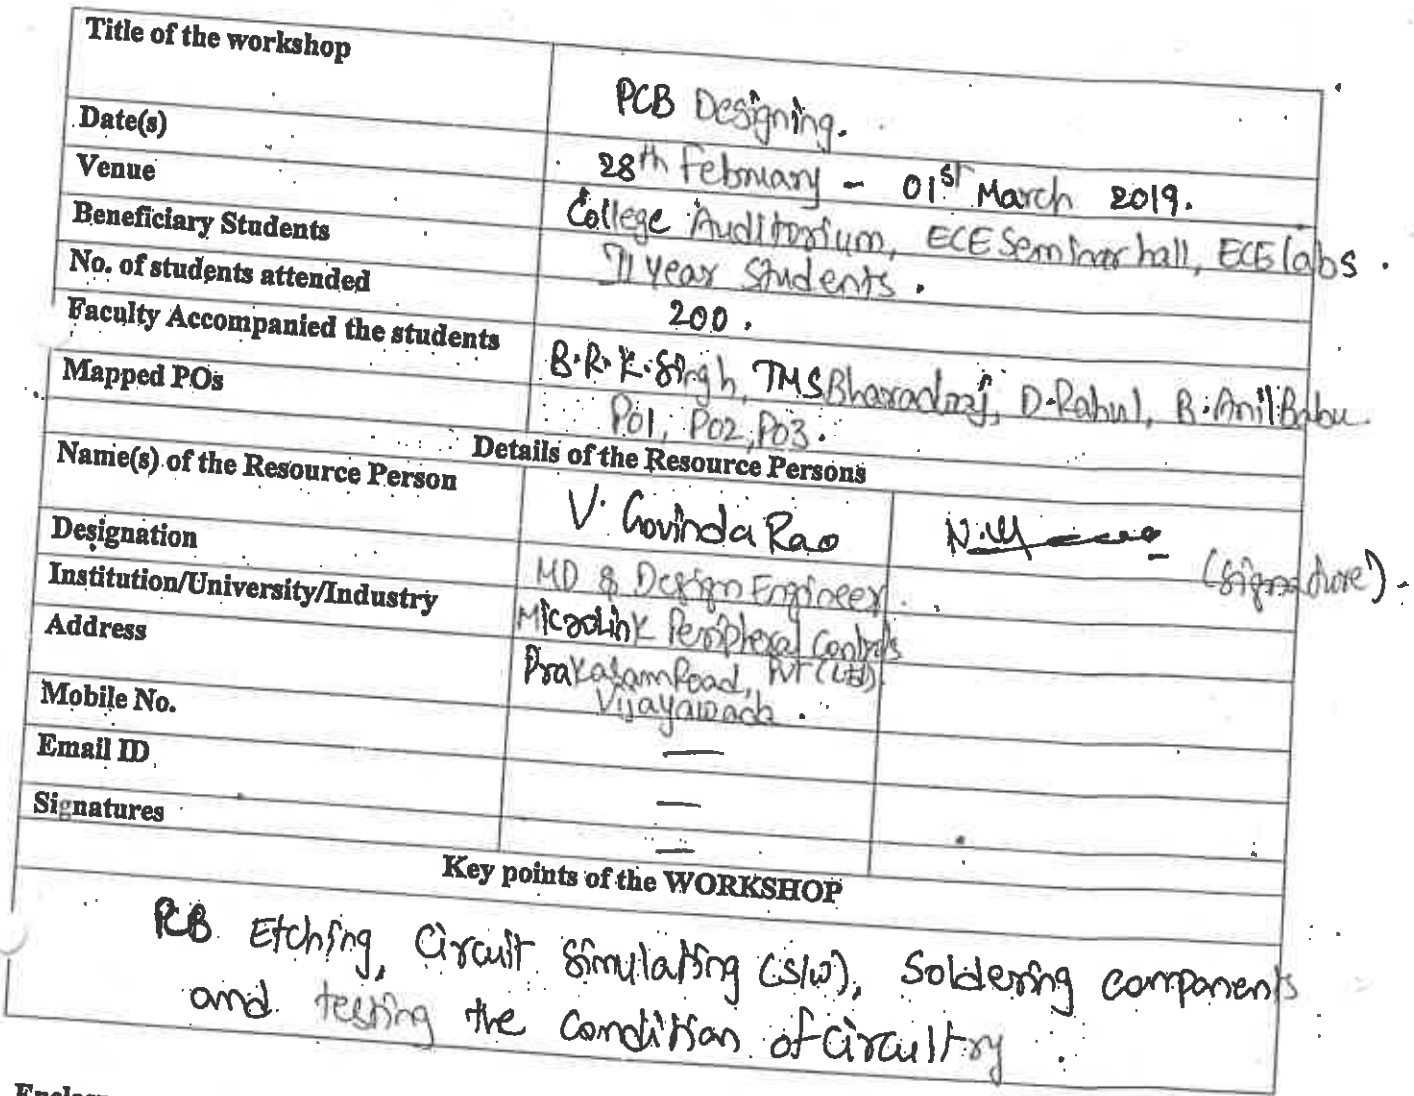 Title of the workshop PCB Designing.
Date(s) 28th February - 01st March 2019.
Venue College Auditorium, ECE Seminar hall, ECE labs.
Beneficiary Students II year Students.
No. of students attended 200.
Faculty Accompanied the students B.R.K.Singh, TMS Bharadwaj, D.Rahul, B.Anil Babu
Mapped POs PO1, PO2, PO3.
Details of the Resource Persons
Name(s) of the Resource Person V. Govinda Rao (Signature)
Designation MD & Design Engineer.
Institution/University/Industry Microlink Peripheral Controls
Pvt (Ltd).
Address Prakasam Road,
Vijayawada.
Mobile No. —
Email ID —
Signatures —
Key points of the WORKSHOP
PCB Etching, Circuit Simulating (S/W), Soldering components
and testing the condition of circuitry.